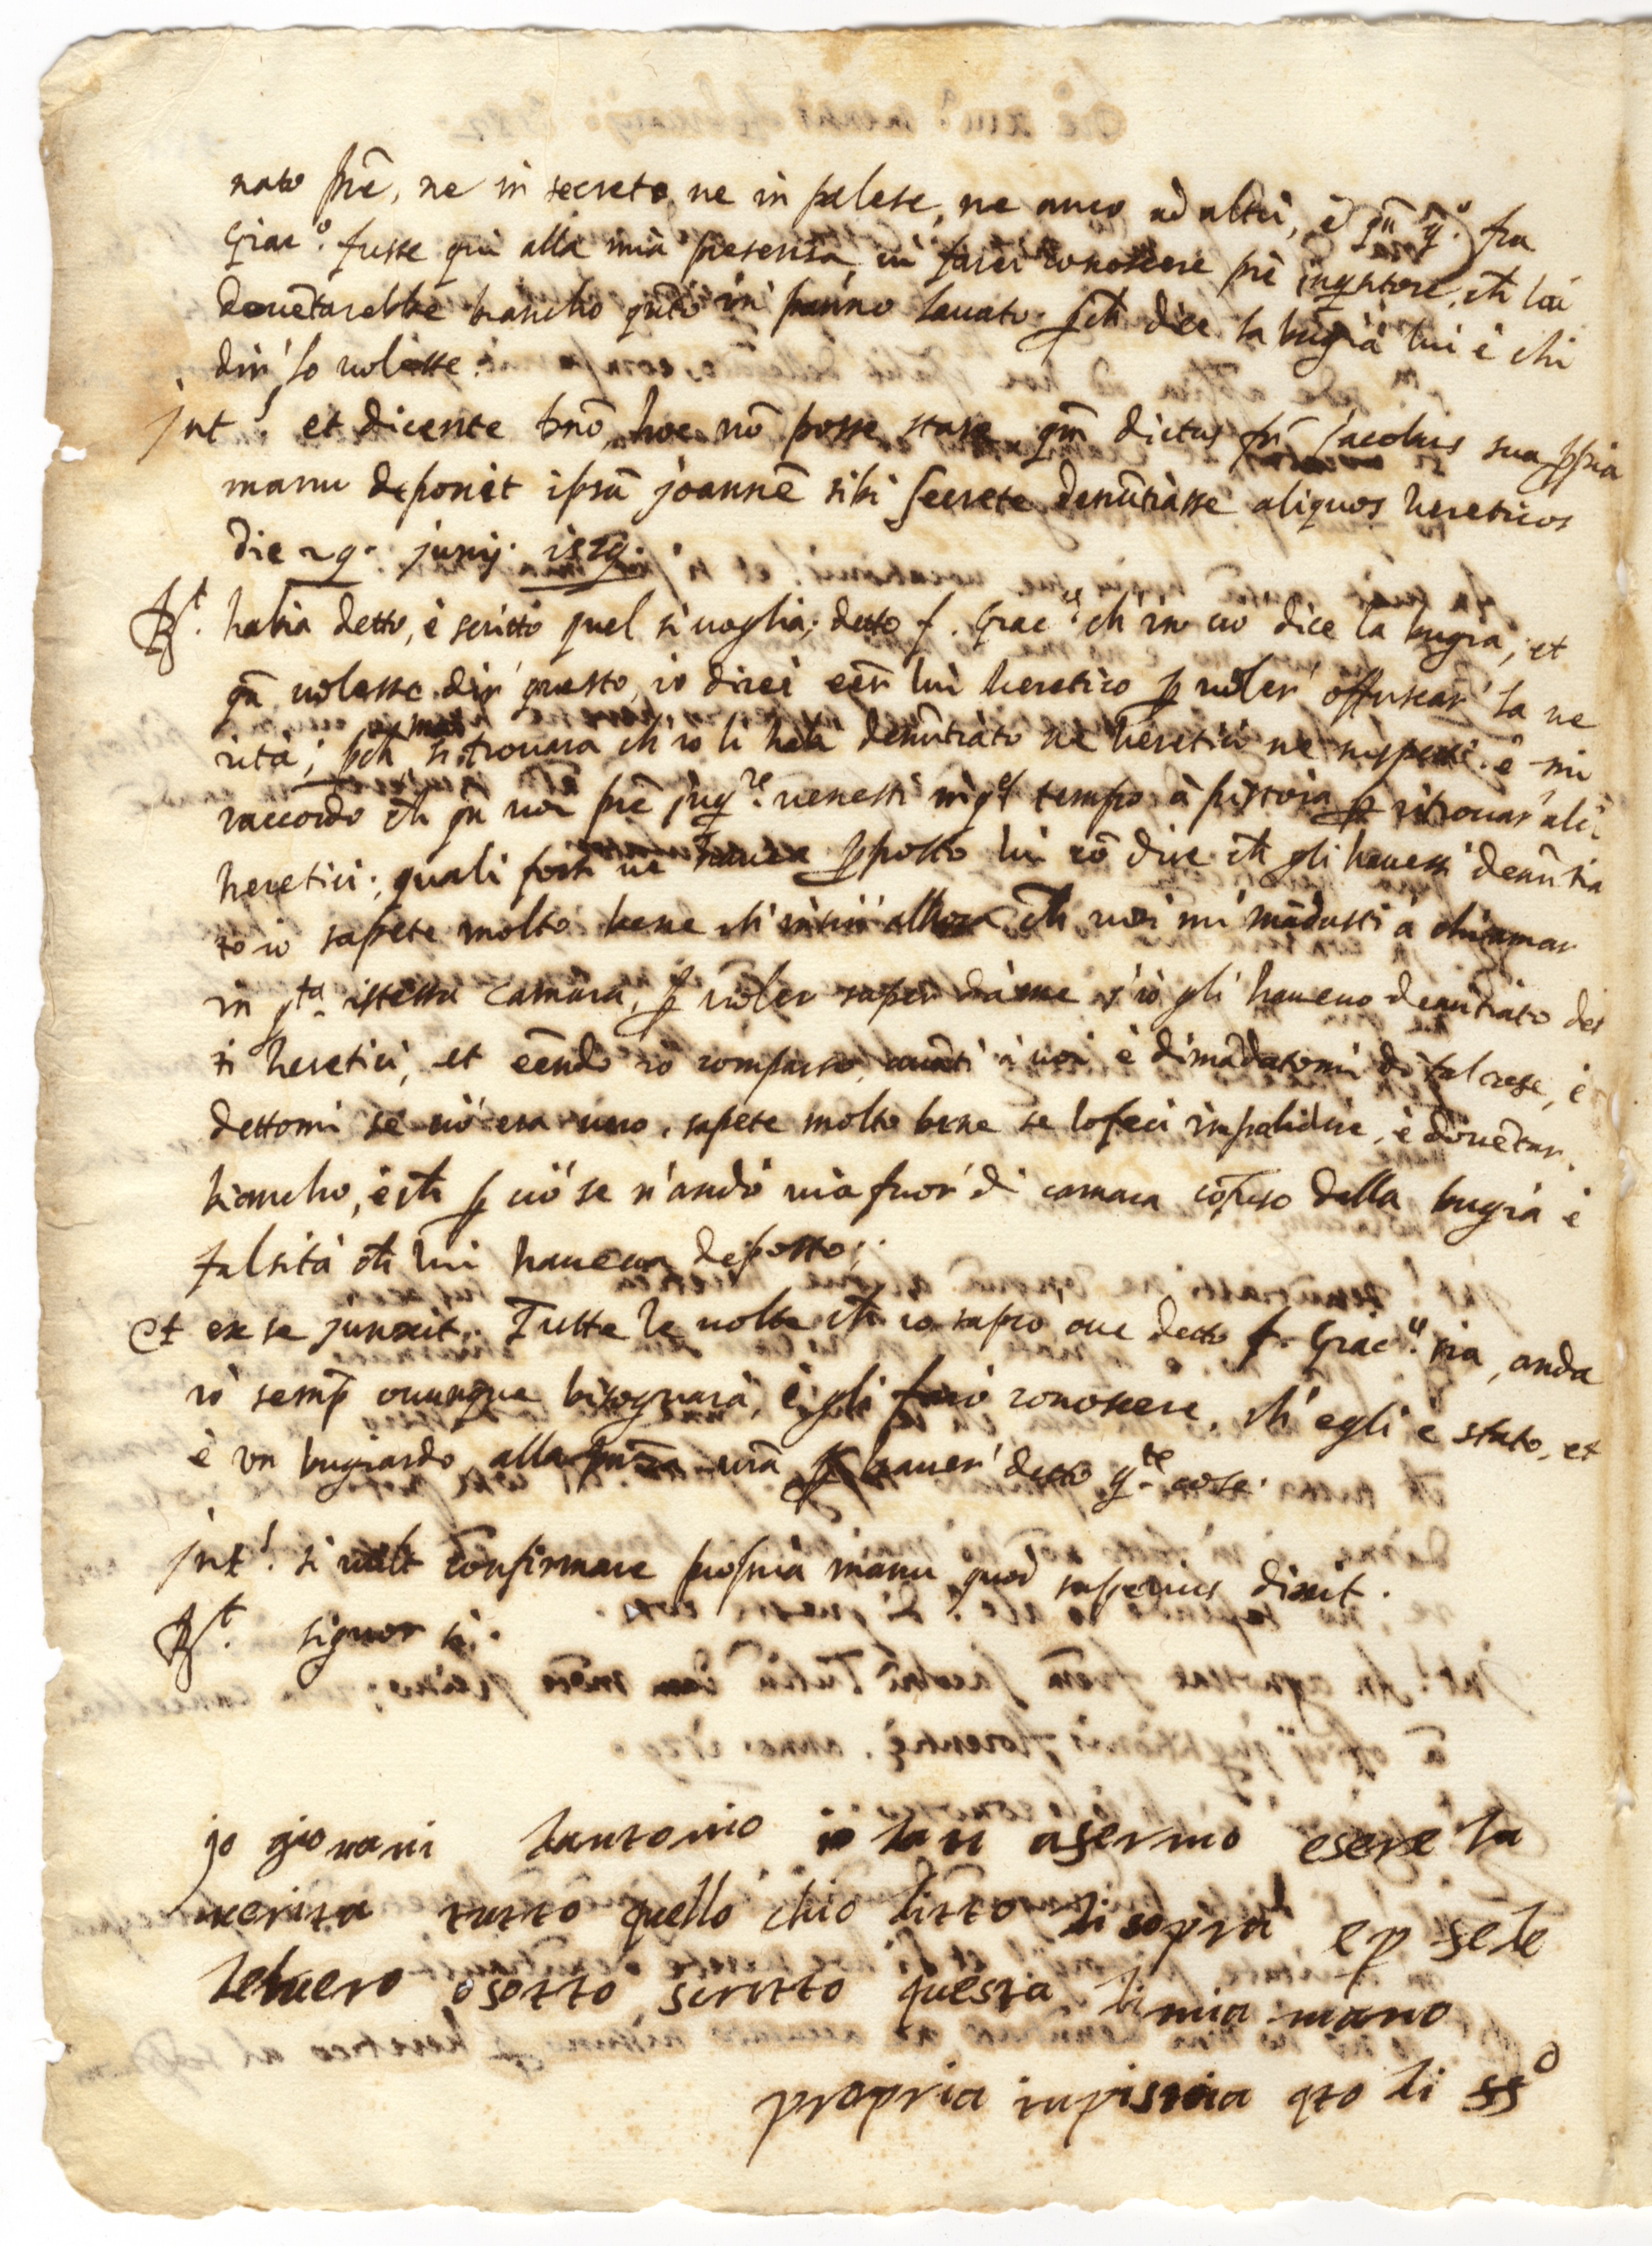 nato prē, ne in secreto, ne in palese, ne anco ad altri, è qn̄ q.º fra
Giac.º fusse qui alla mia presenza, vi farei conoscere prē inqtore, ch̄ lui
douētarebbe biancho qn̄to un panno lauato. ꝑch̄ dice la bugia lui è chi
dir' lo volesse.
jnt.s et dicente dnō, hoc nō posse stare qm̄ dictus fr̄ Jacobus sua ꝓpria
manu deponit ipsū joannē sibi secrete denūtiasse aliquos hereticos
die 29. junij. 1579.
Rt. habia detto, è scritto quel si uoglia, detto f. Giac.º ch' in ciò dice la bugia, et
qn̄ volesse dir' questo, io direi eēr lui heretico ꝑ voler' offuscar' la ve
rità; ꝑch̄ mai si trouara ch' io li habi denūtiato ne heretici ne suspetti. è mi
raccordo ch̄ qn̄ voi prē jnq.re venesti in q.l tempo à pistoia ꝑ ritrouar' alc.i
heretici, quali forsi ve haueua ꝓposto lui cō dire ch̄ gli hauessi denūtia
to io sapete molto bene ch' insin' allhora ch̄ voi mi mādasti à chiamar
in q.ta istessa camara, ꝑ voler saper da me s' io gli haueuo denūtiato det
ti heretici, et eēndo io comparso, auāti à voi è dimādatomi di tal cose, è
dettomi se ciò era vero, sapete molto bene se lo feci impalidire, è douētar
biancho, è ch̄ ꝑ ciò se n'andò uia fuor' di camara cōfuso della bugia è
falsità ch̄ lui haueua deposto;
Et ex se junxit. Tutte le volte ch̄ io sapro oue detto f. Giac.º sia, anda
rò semꝑ ouunque bisognarà, è gli farò conoscere, ch' egli è stato, et
è un bugiardo alla pn̄za vrā ꝑ hauer' detto q.te cose.
jnt.s si vult confirmare propria manu quod superius dixit.
Rt. signor si.
jo giovani dantonio afermo esere la
verita tutto quello chio ditto di sopra e p fede
del vero o sotto scritto questa di mia mano
propria in pistoia qto di ssº